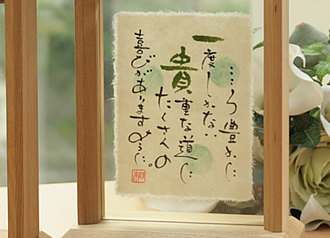 こころ豊かに
一度しかない
貴重な道に
たくさんの
喜びがありますように。